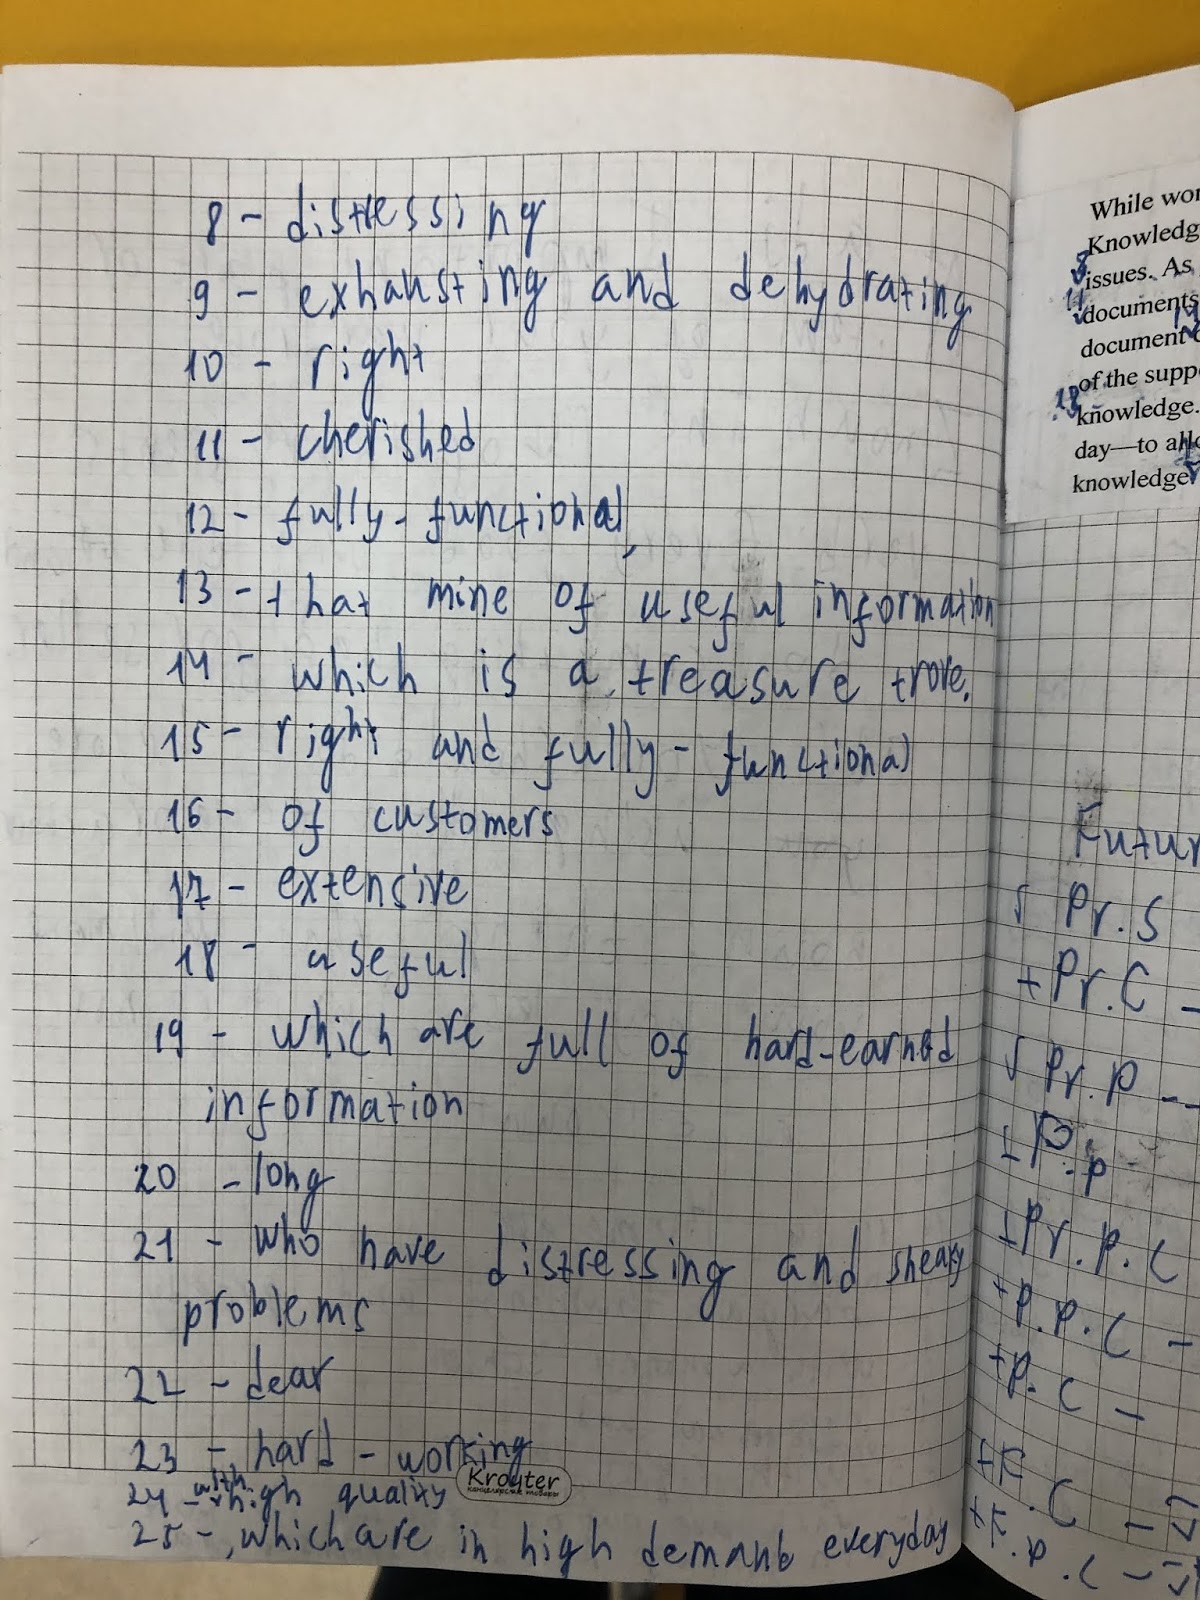 8 - distressing
9 - exhausting and dehydrating
10 - right
11 - cherished
12 - fully-functional,
13 - that mine of useful information
14 - which is a treasure trove.
15 - right and fully-functional
16 - of customers
17 - extensive
18 - useful
19 - which are full of hard-earned
information
20 - long
21 - who have distressing and sneaky
problems
22 - dear
23 - hard-working
24 - with high quality
25 - , which are in high demand everyday
Kroyter
канцелярские товары
While wor
Knowledg
8 issues. As
11 documents
document
of the supp
18 knowledge.
day—to allo
knowledge
Futur
Pr. S
+ Pr. C -
Pr. P --
P. p
Pr. P. C
+ P. P. C -
+ P. C -
+ F. C -
+ F. P. C -